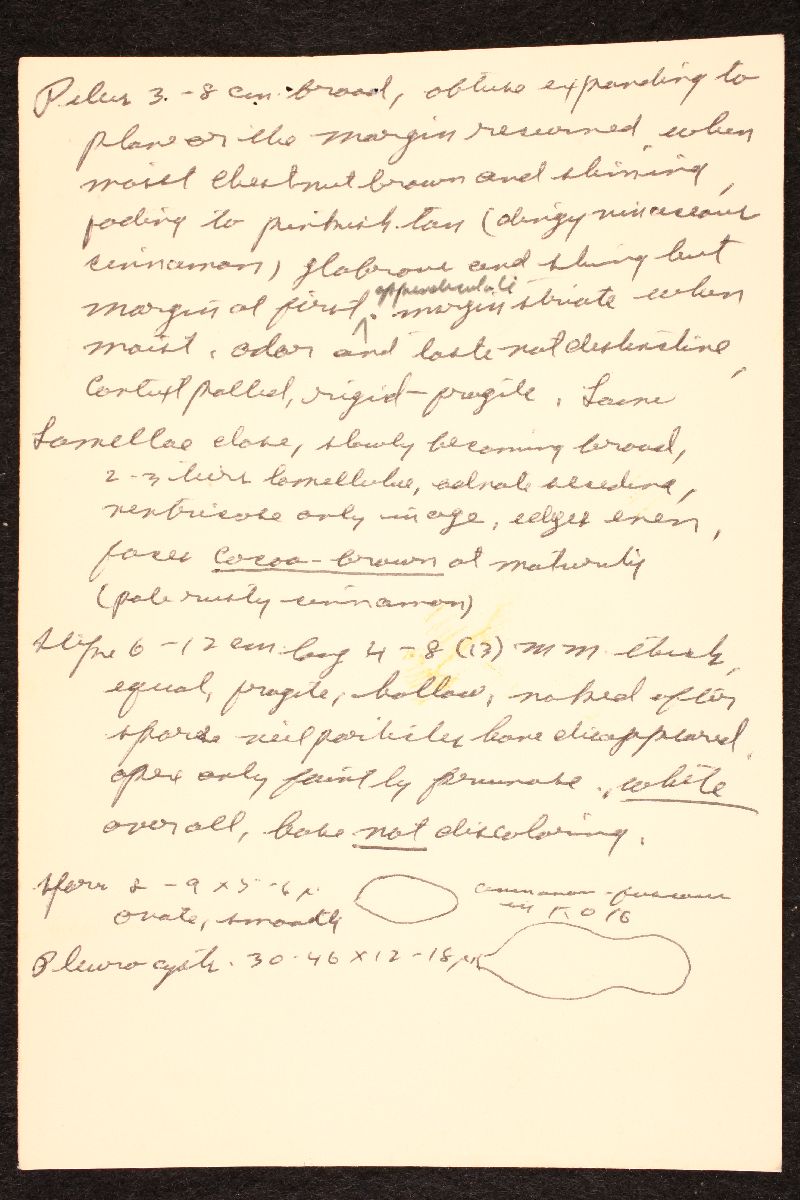 Pileus 3 - 8 cm broad, obtuse expanding to
plane or the margin recurved, when
moist chestnut brown and shining,
fading to pinkish tan (dingy vinaceous
cinnamon) glabrous and shiny but
margin at first appendiculate, margin striate when
moist, odor and taste not distinctive,
Context pallid, rigid-fragile,
Lamellae close, slowly becoming broad,
2-3 tiers lamellulae, adnate seceding,
ventricose only in age, edges even,
faces cocoa-brown at maturity
(pale rusty cinnamon)
Stipe 6 - 12 cm long 4 - 8 (13) mm thick,
equal, fragile, hollow, naked after
sparse veil particles have disappeared,
apex only faintly pruinose, white
overall, base not discoloring.
Spores 8 - 9 x 5 - 6 µ
cinnamon-fuscous
in KOH
ovate, smooth
Pleurocysts. 30-46 x 12-18 µ